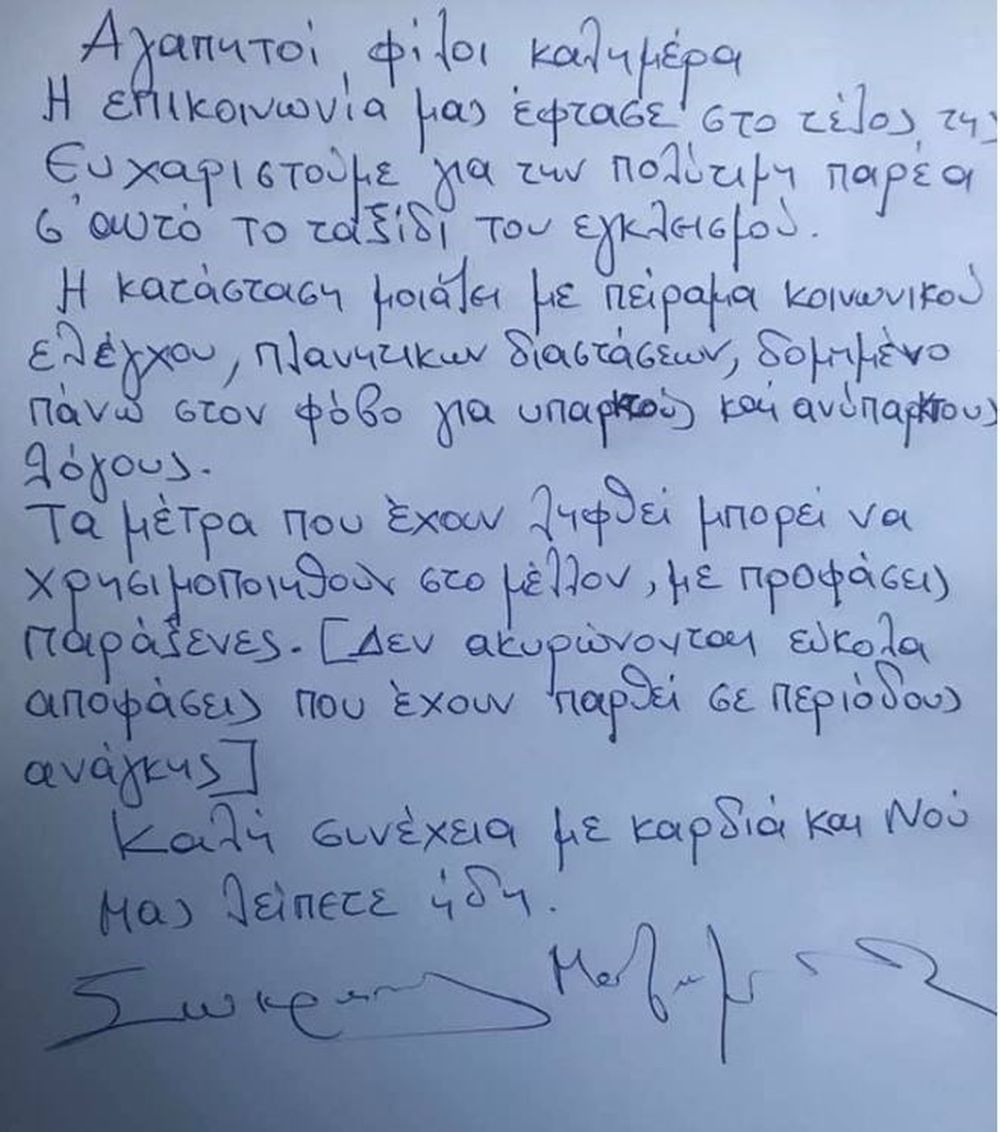 Αγαπητοί φίλοι καλημέρα
Η επικοινωνία μας έφτασε στο τέλος της
Ευχαριστούμε για την πολύτιμη παρέα
σ' αυτό το ταξίδι του εγκλεισμού.
Η κατάσταση μοιάζει με πείραμα κοινωνικού
ελέγχου, πλανητικων διαστάσεων, δομημένο
πάνω στον φόβο για υπαρκτούς και ανύπαρκτους
λόγους.
Τα μέτρα που έχουν ληφθεί μπορεί να
χρησιμοποιηθούν στο μέλλον, με προφάσεις
παράξενες. [Δεν ακυρώνονται εύκολα
αποφάσεις που έχουν παρθεί σε περιόδους
ανάγκης]
Καλή συνέχεια με καρδιά και Νού
Μας λείπετε ήδη.